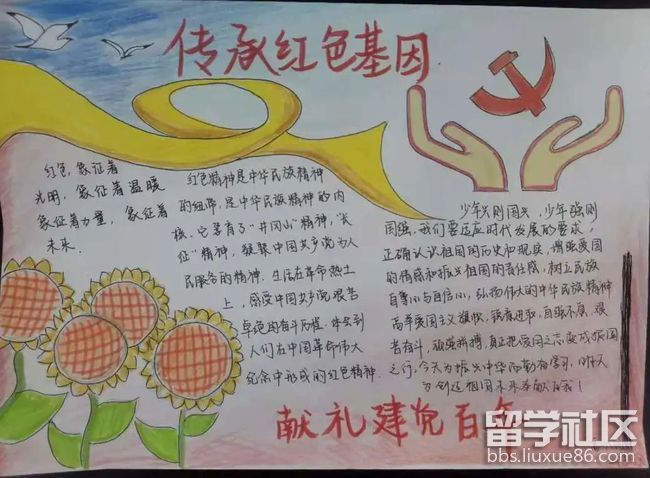 传承红色基因
红色,象征着
光明,象征着温暖
象征着力量,象征着
未来.
红色精神是中华民族精神
的纽带,是中华民族精神的内
核.它孕育了“井冈山”精神,“长
征”精神,凝聚中国共产党为人
民服务的精神.生活在革命热土
上,感受中国共产党艰苦
卓绝的奋斗历程,体会到
人们在中国革命伟大
纪念中形成的红色精神.
少年兴则国兴,少年强则
国强.我们要适应时代发展的要求,
正确认识祖国的历史和现实,增强爱国
的情感和振兴祖国的责任感,树立民族
自尊心与自信心,弘扬伟大的中华民族精神
高举爱国主义旗帜,锐意进取,自强不息,艰
苦奋斗,顽强拼搏,真正把爱国之志变成报国
之行.今天为振兴中华而勤奋学习,明天
为创造祖国未来
献礼建党百年
留学社区
bbs.liuxue86.com